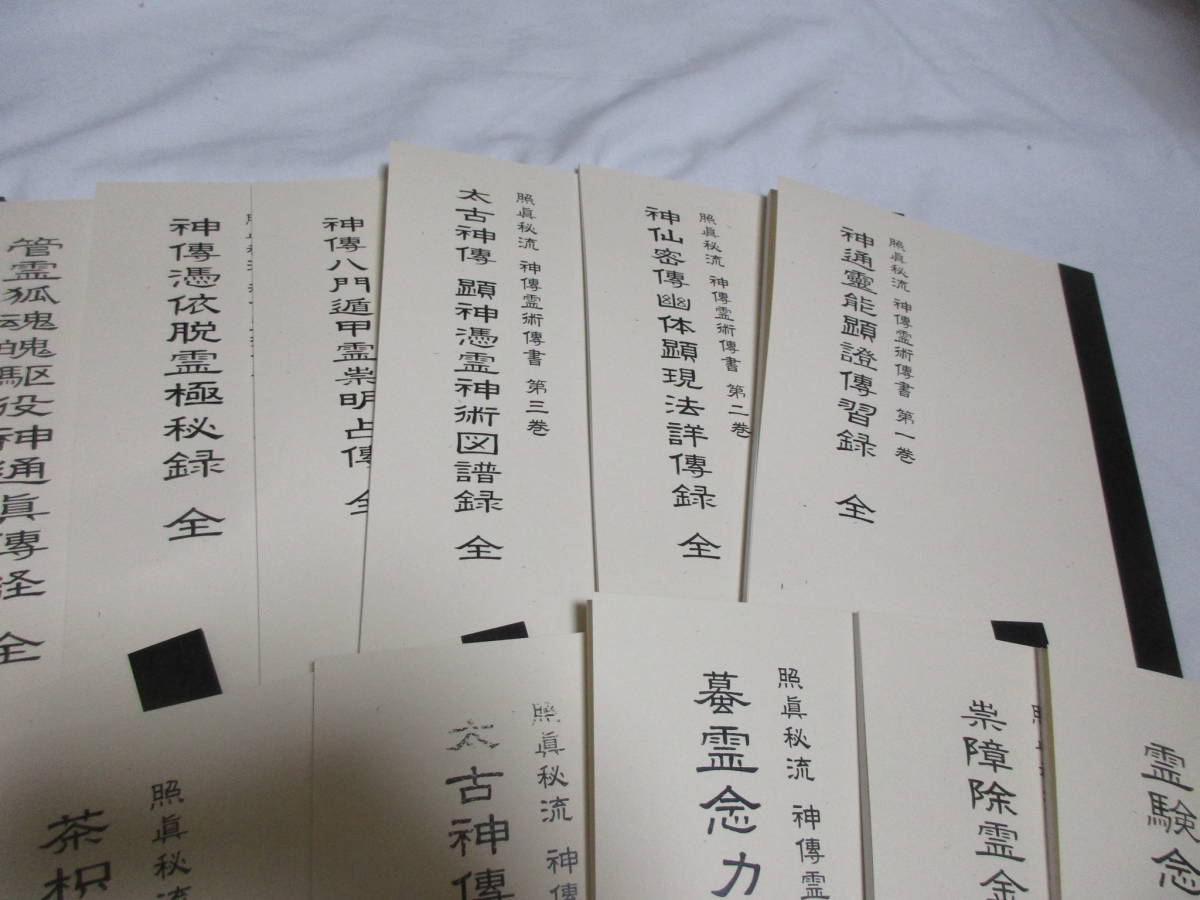 照眞秘流 神傳霊術傳書 第一巻
神通靈能顯證傳習録 全
照眞秘流 神傳霊術傳書 第二巻
神仙密傳幽体顕現法詳傳録 全
照眞秘流 神傳霊術傳書 第三巻
太古神傳 顕神憑霊神術図譜録 全
神傳八門遁甲霊祟明占傳 全
神傳憑依脱霊極秘録 全
管霊狐魂魄駆役神通眞傳経 全
霊験念
祟障除霊
照眞秘流 神傳霊
蟇霊念力
照眞秘流 神傳
太古神傳
照眞秘流
茶枳